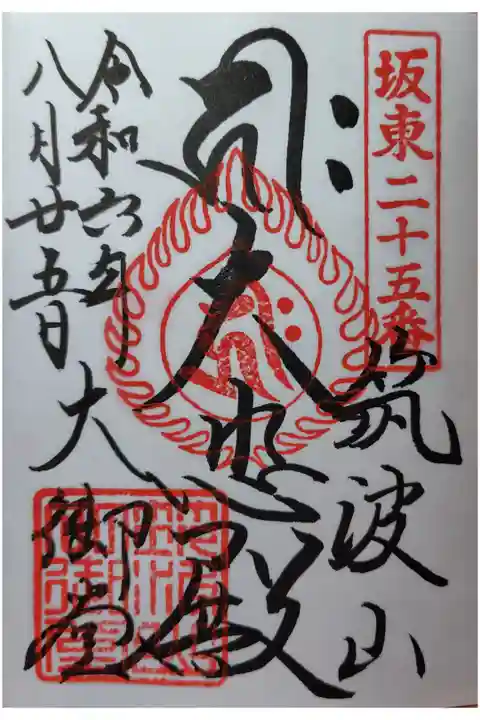 坂東二十五番
筑波山
大悲殿
令和六年
八月廿五日
大御堂